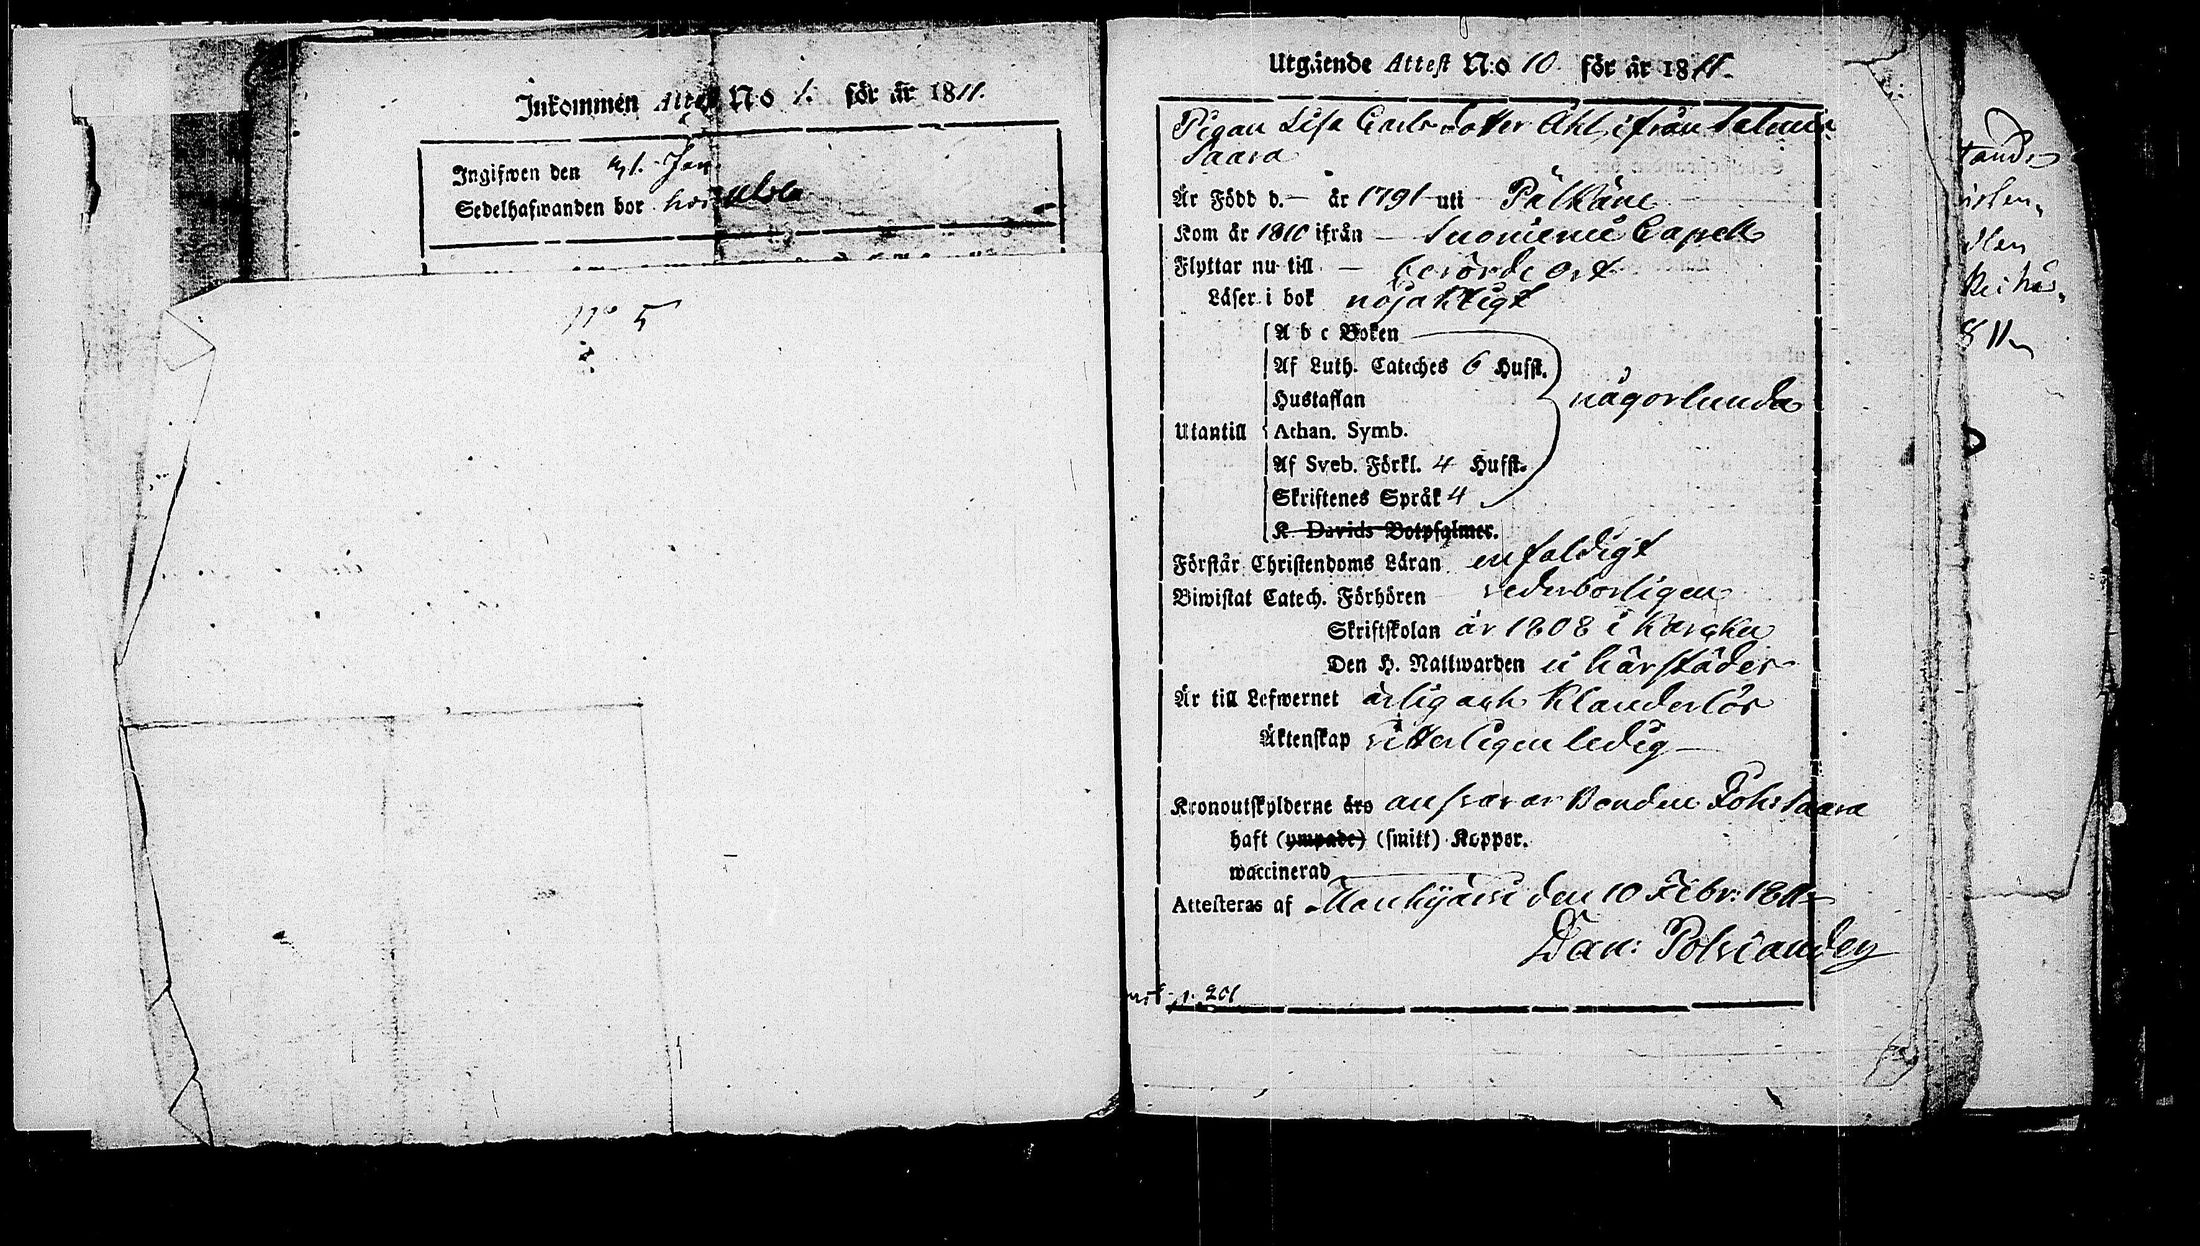 Inkommen Attest N:o 1. för år 1811.
Ingifwen den 21. Jan
Sedelhafwanden bor hos
No 5
Utgående Attest N:o 10. för år 1811.
Pigan Lisa Carlsdotter Ahl, ifrån
Saara
Är Född d. — år 1791 uti Pälkäne
Kom år 1810 ifrån — Suoniemi Capell
Flyttar nu till — berörde ort
Läser i bok nöjaktigt
A b c Boken
Af Luth. Cateches 6 Hufst.
Hustaflan någorlunda
Utantill Athan. Symb.
Af Sveb. Förkl. 4 Hufst.
Skriftenes Språk 4
K. Davids Botpsalmer.
Förstår Christendoms Läran enfaldigt
Biwistat Catech. Förhören vederbörligen
Skriftskolan år 1808 i Karcku
Den H. Nattwarden å härstädes
Är till Lefwernet ärlig och klanderlös
Äktenskap vitterligen ledig —
Kronoutskylderne äro ansvarar Bonden Joh: Saara
haft (ympade) (smitt) Koppor.
waccinerad
Attesteras af Mouhijärvi den 10 Febr: 1811
Dan: Polviander
p. 201
811